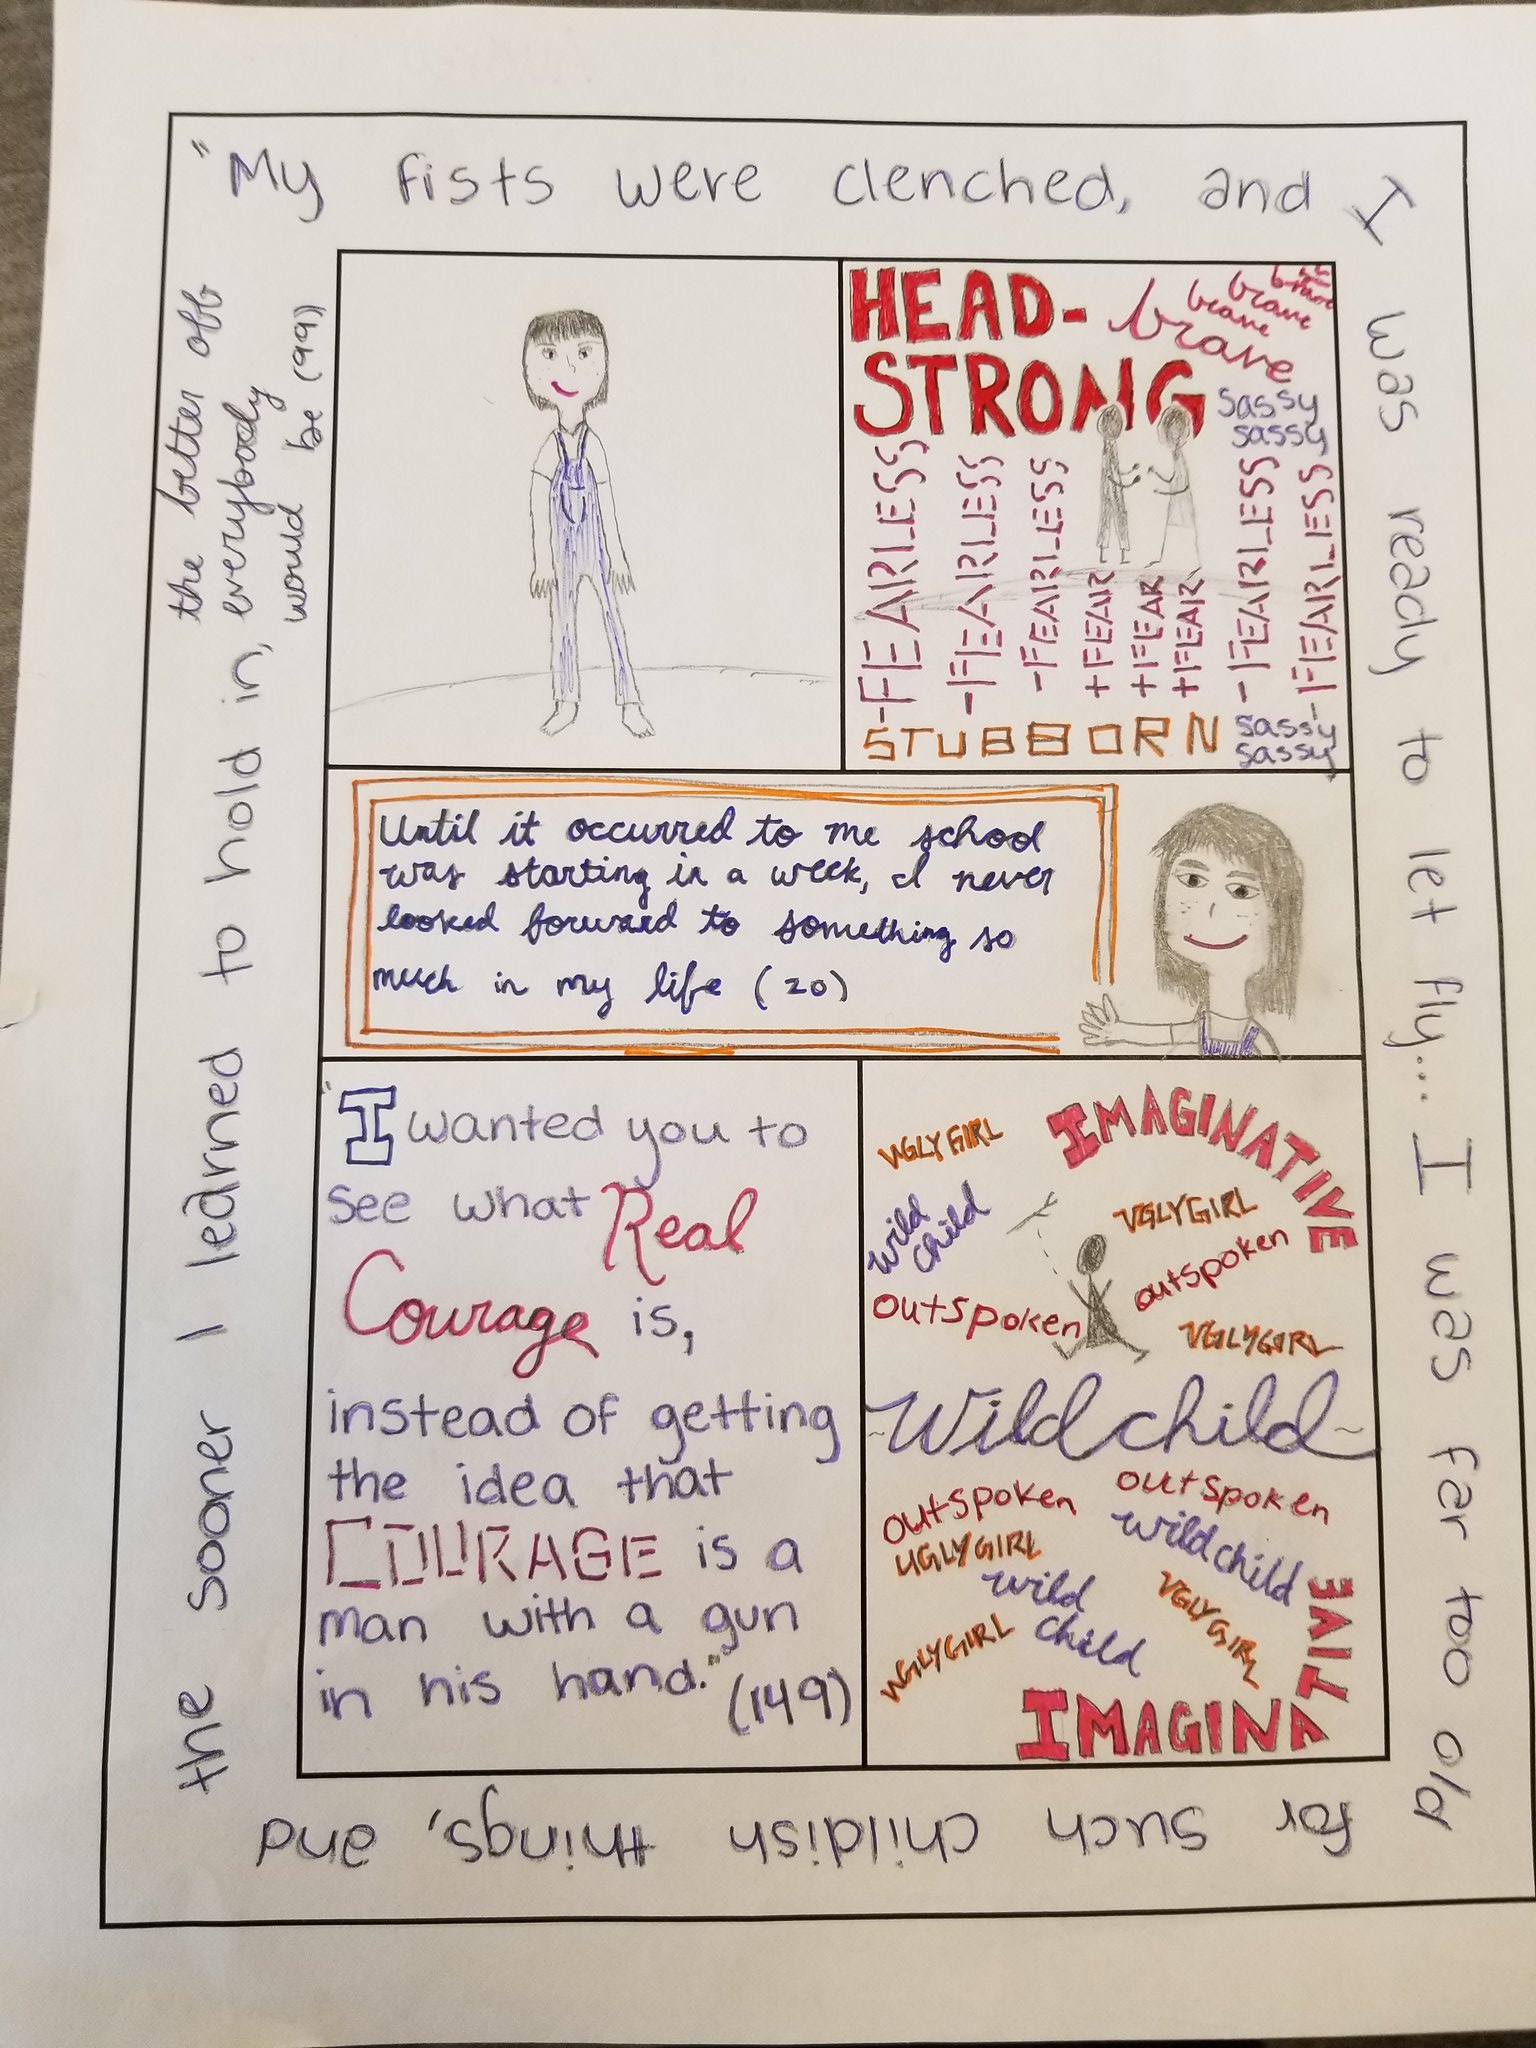 "My fists were clenched, and I
was ready to let fly... I was far too old
for such childish things, and
the sooner I learned to hold in,
the better off
everybody
would be (99)
HEAD-
STRONG
brave
brave
brave
brave
sassy
sassy
-FEARLESS
-FEARLESS
-FEARLESS
+FEAR
+FEAR
+FEAR
-FEARLESS
-FEARLESS
STUBBORN
sassy
sassy
Until it occurred to me school
was starting in a week, I never
looked forward to something so
much in my life (20)
"I wanted you to
see what Real
Courage is,
instead of getting
the idea that
COURAGE is a
man with a gun
in his hand." (149)
UGLY GIRL
IMAGINATIVE
wild
child
UGLYGIRL
outspoken
outspoken
UGLYGIRL
~Wild child~
outspoken
outspoken
UGLYGIRL
wild child
wild
child
UGLYGIRL
UGLYGIRL
IMAGINATIVE